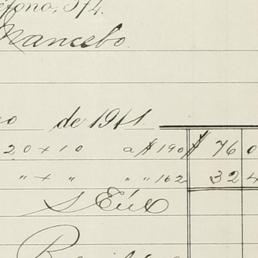 éfono, 574.
Mancebo.
o de 1911
20 + 10 a $ 190 $ 76 0
" + " " " 162 32 4
S. E. ú O.